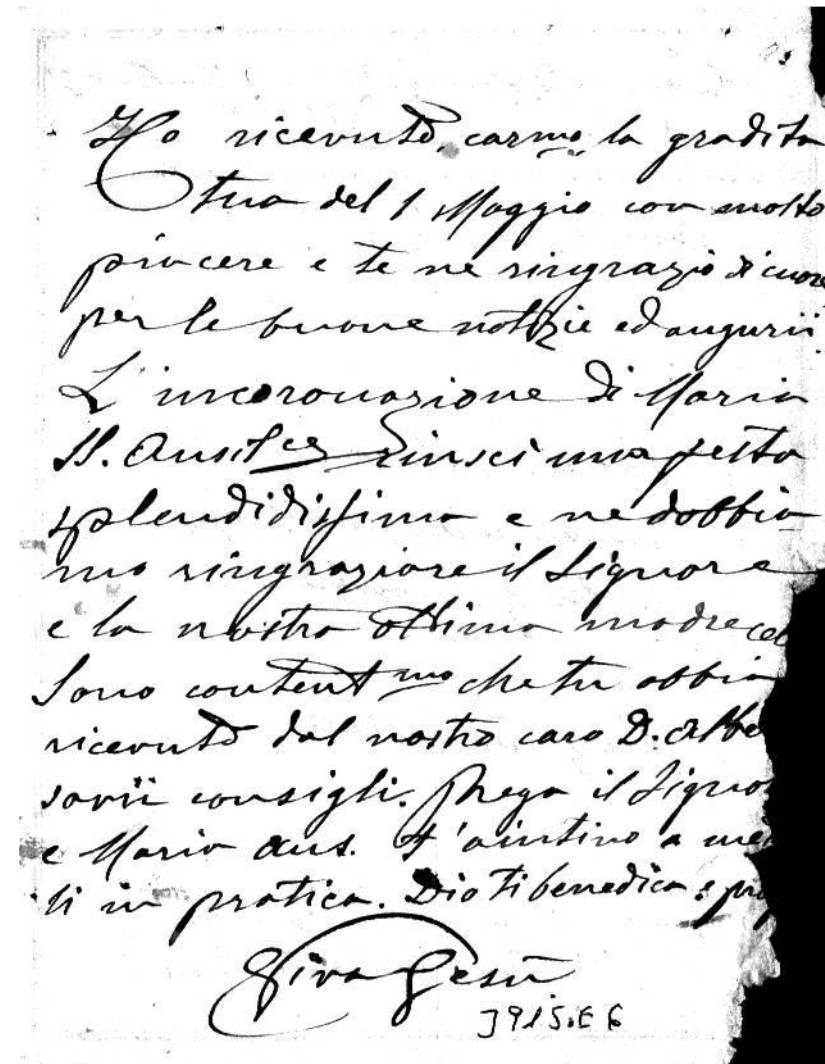 Ho ricevuto, carmo la gradita
tua del 1 Maggio con molto
piacere e te ne ringrazio di cuore
per le buone notizie ed augurii.
L'incoronazione di Maria
SS. Ausilce riuscì una festa
splendidissima e ne dobbia
mo ringraziare il Signore
e la nostra ottima madre cel
Sono contentmo che tu abbia
ricevuto dal nostro caro D. Albe
savii consigli. Prega il Signo
e Maria Aus. t'aiutino a me
li in pratica. Dio ti benedica e
Viva Gesù
3915.E6